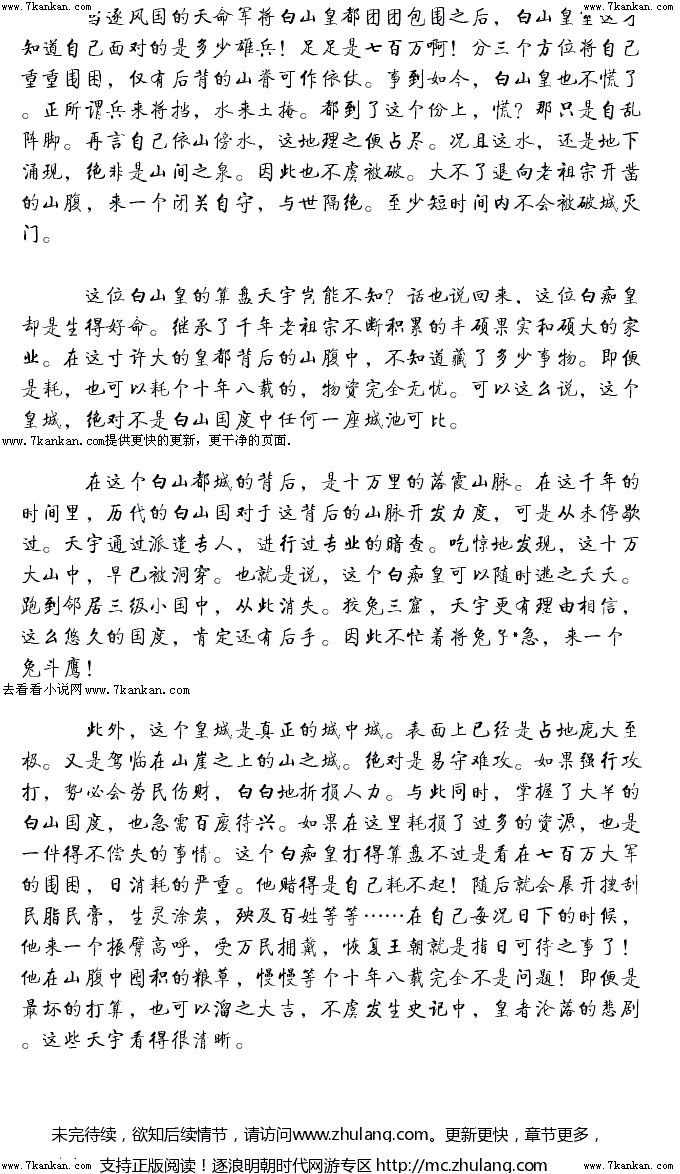 www.7kankan.com www.7kankan.com
当逐风国的天命军将白山皇都团团包围之后，白山皇至这才
知道自己面对的是多少雄兵！足足是七百万啊！分三个方位将自己
重重围困，仅有后背的山脊可作依仗。事到如今，白山皇也不慌了
。正所谓兵来将挡，水来土掩。都到了这个份上，慌？那只是自乱
阵脚。再言自己依山傍水，这地理之便占尽。况且这水，还是地下
涌现，绝非是山间之泉。因此也不虞被破。大不了退向老祖宗开凿
的山腹，来一个闭关自守，与世隔绝。至少短时间内不会被破城灭
门。
这位白山皇的算盘天宇岂能不知？话也说回来，这位白痴皇
却是生得好命。继承了千年老祖宗不断积累的丰硕果实和硕大的家
业。在这寸许大的皇都背后的山腹中，不知道藏了多少事物。即便
是耗，也可以耗个十年八载的，物资完全无忧。可以这么说，这个
皇城，绝对不是白山国度中任何一座城池可比。
www.7kankan.com提供更快的更新，更干净的页面.
在这个白山都城的背后，是十万里的落霞山脉。在这千年的
时间里，历代的白山国对于这背后的山脉开发力度，可是从未停歇
过。天宇通过派遣专人，进行过专业的暗查。吃惊地发现，这十万
大山中，早已被洞穿。也就是说，这个白痴皇可以随时逃之夭夭。
跑到邻居三级小国中，从此消失。狡兔三窟，天宇更有理由相信，
这么悠久的国度，肯定还有后手。因此不忙着将兔子急，来一个
兔斗鹰！
去看看小说网www.7kankan.com
此外，这个皇城是真正的城中城。表面上已经是占地庞大至
极。又是驾临在山崖之上的山之城。绝对是易守难攻。如果强行攻
打，势必会劳民伤财，白白地折损人力。与此同时，掌握了大半的
白山国度，也急需百废待兴。如果在这里耗损了过多的资源，也是
一件得不偿失的事情。这个白痴皇打得算盘不过是看在七百万大军
的围困，日消耗的严重。他赌得是自己耗不起！随后就会展开搜刮
民脂民膏，生灵涂炭，殃及百姓等等……在自己每况日下的时候，
他来一个振臂高呼，受万民拥戴，恢复王朝就是指日可待之事了！
他在山腹中囤积的粮草，慢慢等个十年八载完全不是问题！即便是
最坏的打算，也可以溜之大吉，不虞发生史记中，皇者沦落的悲剧
。这些天宇看得很清晰。
未完待续，欲知后续情节，请访问www.zhulang.com。更新更快，章节更多，
www.7kankan.com 支持正版阅读！逐浪明朝时代网游专区 http://mc.zhulang.com www.7kankan.com